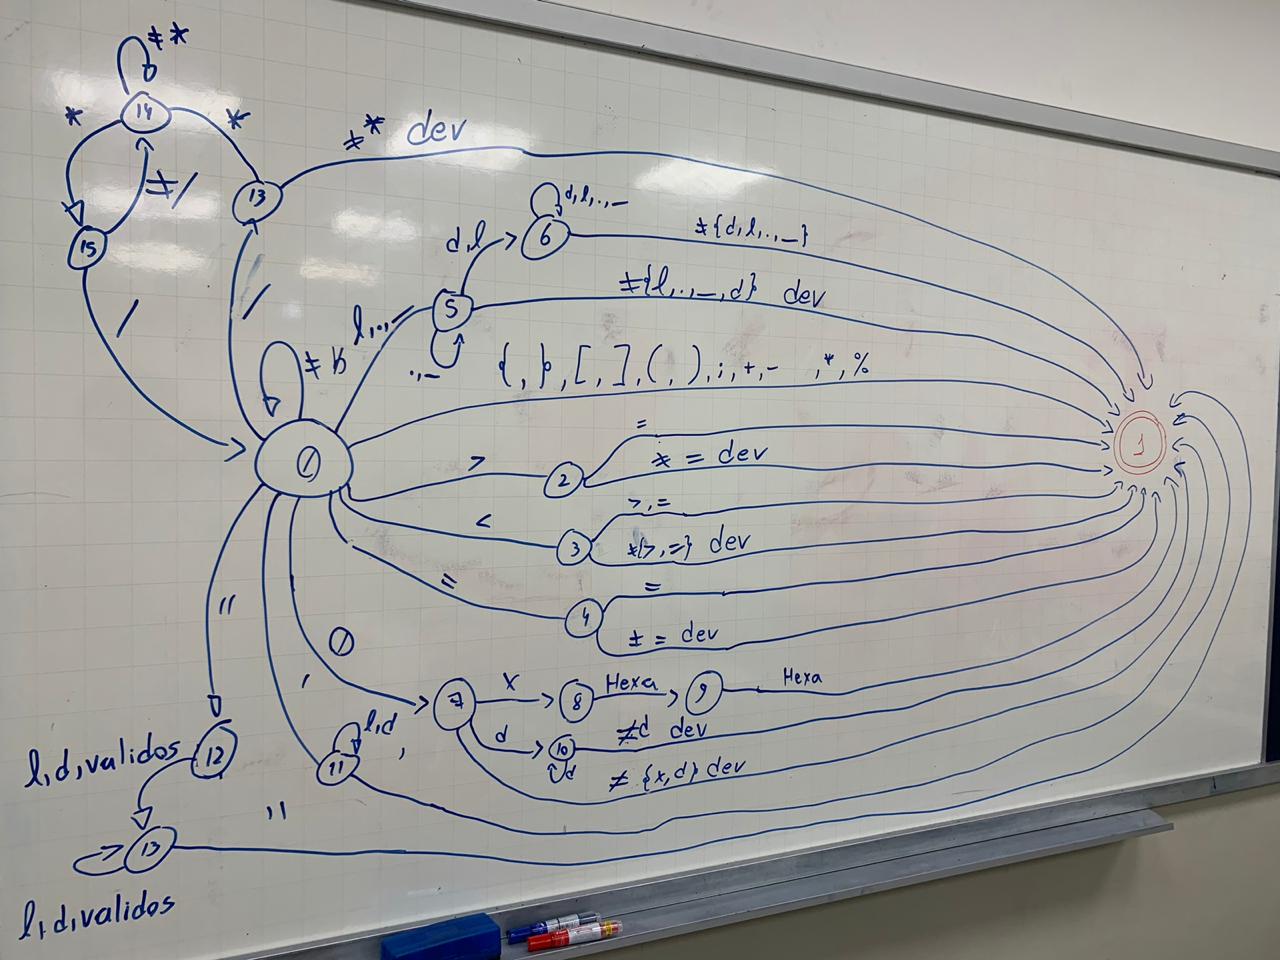 ≠*
14
*
*
≠* dev
≠/
13
15
d,l,.,_
d,l
6
≠{d,l,.,_}
/
/
5
≠{l,.,_,d} dev
l,.,_
≠ b
.,_
{,},[,],(,),;,+,- ,*,%
0
>
2
=
≠ = dev
1
<
3
>,=
≠{>,=} dev
=
4
=
≠ = dev
"
0
'
7
x
8
Hexa
9
Hexa
l,d
d
10
≠d dev
d
'
≠ {x,d} dev
l,d,validos
12
11
"
13
l,d,validos